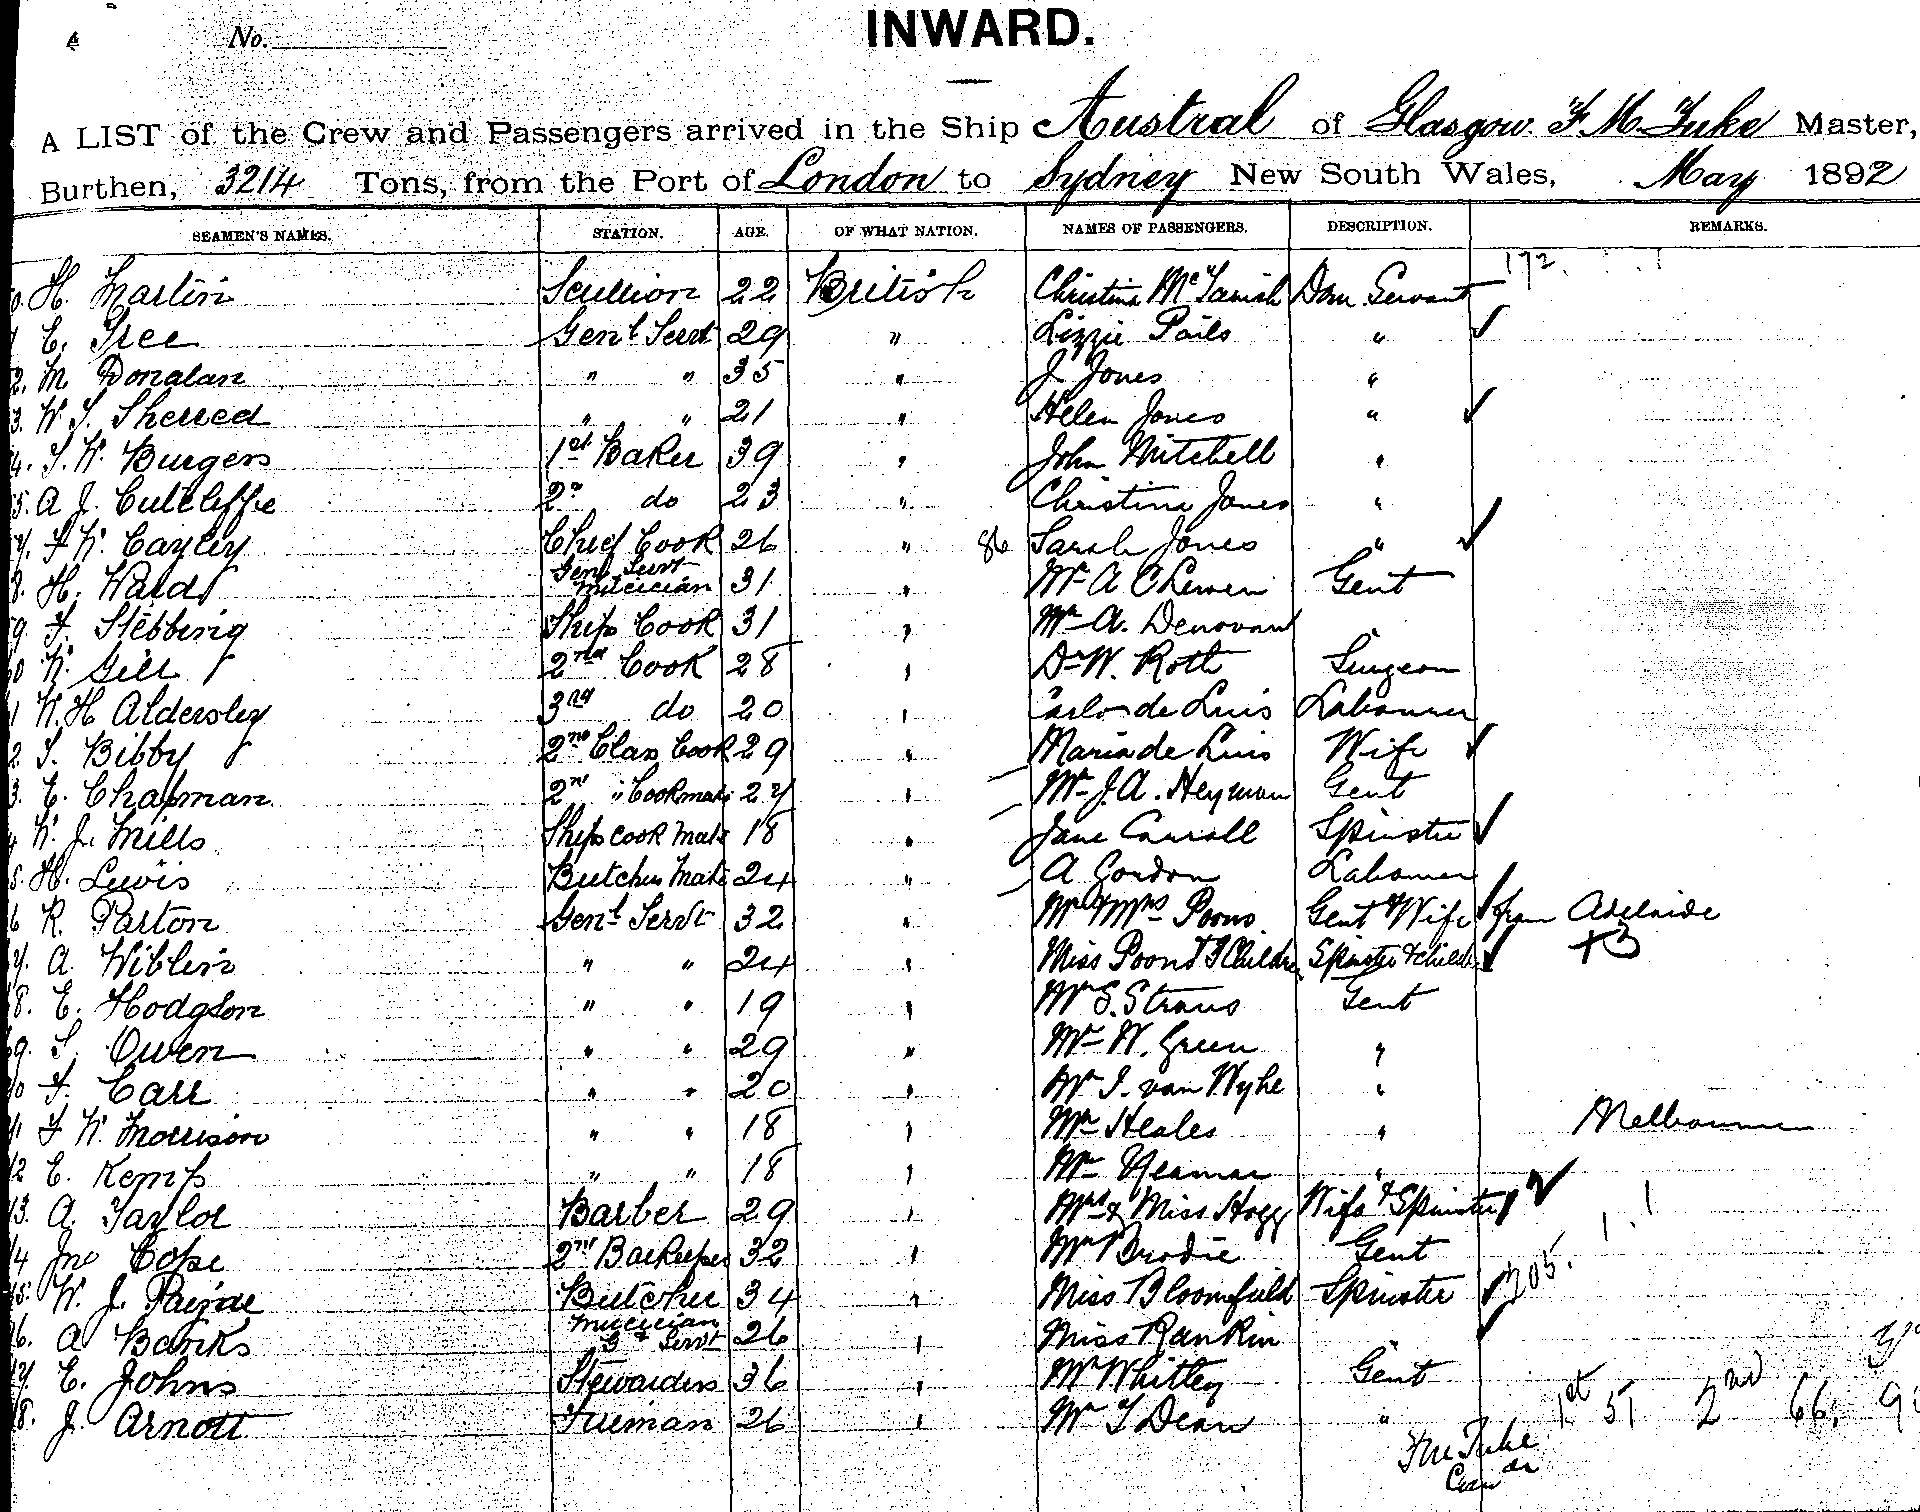 No.
INWARD.
A LIST of the Crew and Passengers arrived in the Ship Austral of Glasgow. F. M. Tuke Master,
Burthen, 3214 Tons, from the Port of London to Sydney New South Wales, May 1892
SEAMEN'S NAMES. STATION. AGE. OF WHAT NATION. NAMES OF PASSENGERS. DESCRIPTION. REMARKS.
H. Martin Scullion 22 British Christina McTavish Dom Servant 172
C. Tree Genl Servt 29 " Lizzie Pails "
2. M. Donalan " " 35 " J. Jones "
3. W. S. Sherred " " 21 " Helen Jones "
4. T. W. Burgess 1st Baker 39 " John Mitchell "
5. A J. Cutcliffe 2n do 23 " Christina Jones "
7. F W. Cayley Chief Cook 26 " 86 Sarah Jones "
8. H. Wald Genl Servt Musician 31 " Mr A Gent
9. F. Stebbing Ships Cook 31 " Mr A. Denovant "
0 W. Gill 2nd Cook 28 " Dr W. Roth Surgeon
1 W. H Aldersley 3rd do 20 " Carlo de Luis Labourer
2 S. Bibby 2nd Clas Cook 29 " Maria de Luis Wife
3. C. Chapman 2nd " Cookmate 27 " Mr J. A. Heyman Gent
4 W. J. Mills Ships cook Mate 18 " Jane Carroll Spinster
5. H. Lewis Butchers Mate 24 " A Gordon Labourer
6 R. Parton Genl Servt 32 " Mr & Mrs Poons Gent & Wife from Adelaide
7. A. Wiblin " " 24 " Miss Poons & 3 Childrn Spinster & childn +3
8. E. Hodgson " " 19 " Mr S. Straus Gent
9. S. Owen " " 29 " Mr W. Green "
0 F. Carr " " 20 " Mr I. van Wyhe "
1 F W. Morrison " " 18 " Mr Heales " Melbourne
2 C. Kemp " " 18 " Mr Yeaman "
3. A. Taylor Barber 29 " Mrs & Miss Hogg Wife & Spinster
4 Jno Cope 2nd Barkeeper 32 " Mr Brodie Gent
5. W. J. Paine Butcher 34 " Miss Bloomfield Spinster 205.
6. A Banks Musician G Servt 26 " Miss Rankin
7 E. Johns Stewardess 36 " Mr Whitley Gent
8. J. Arnott Fireman 26 " Mr T Dean " 1st 51 2nd 66.
F M Tuke
Comdr